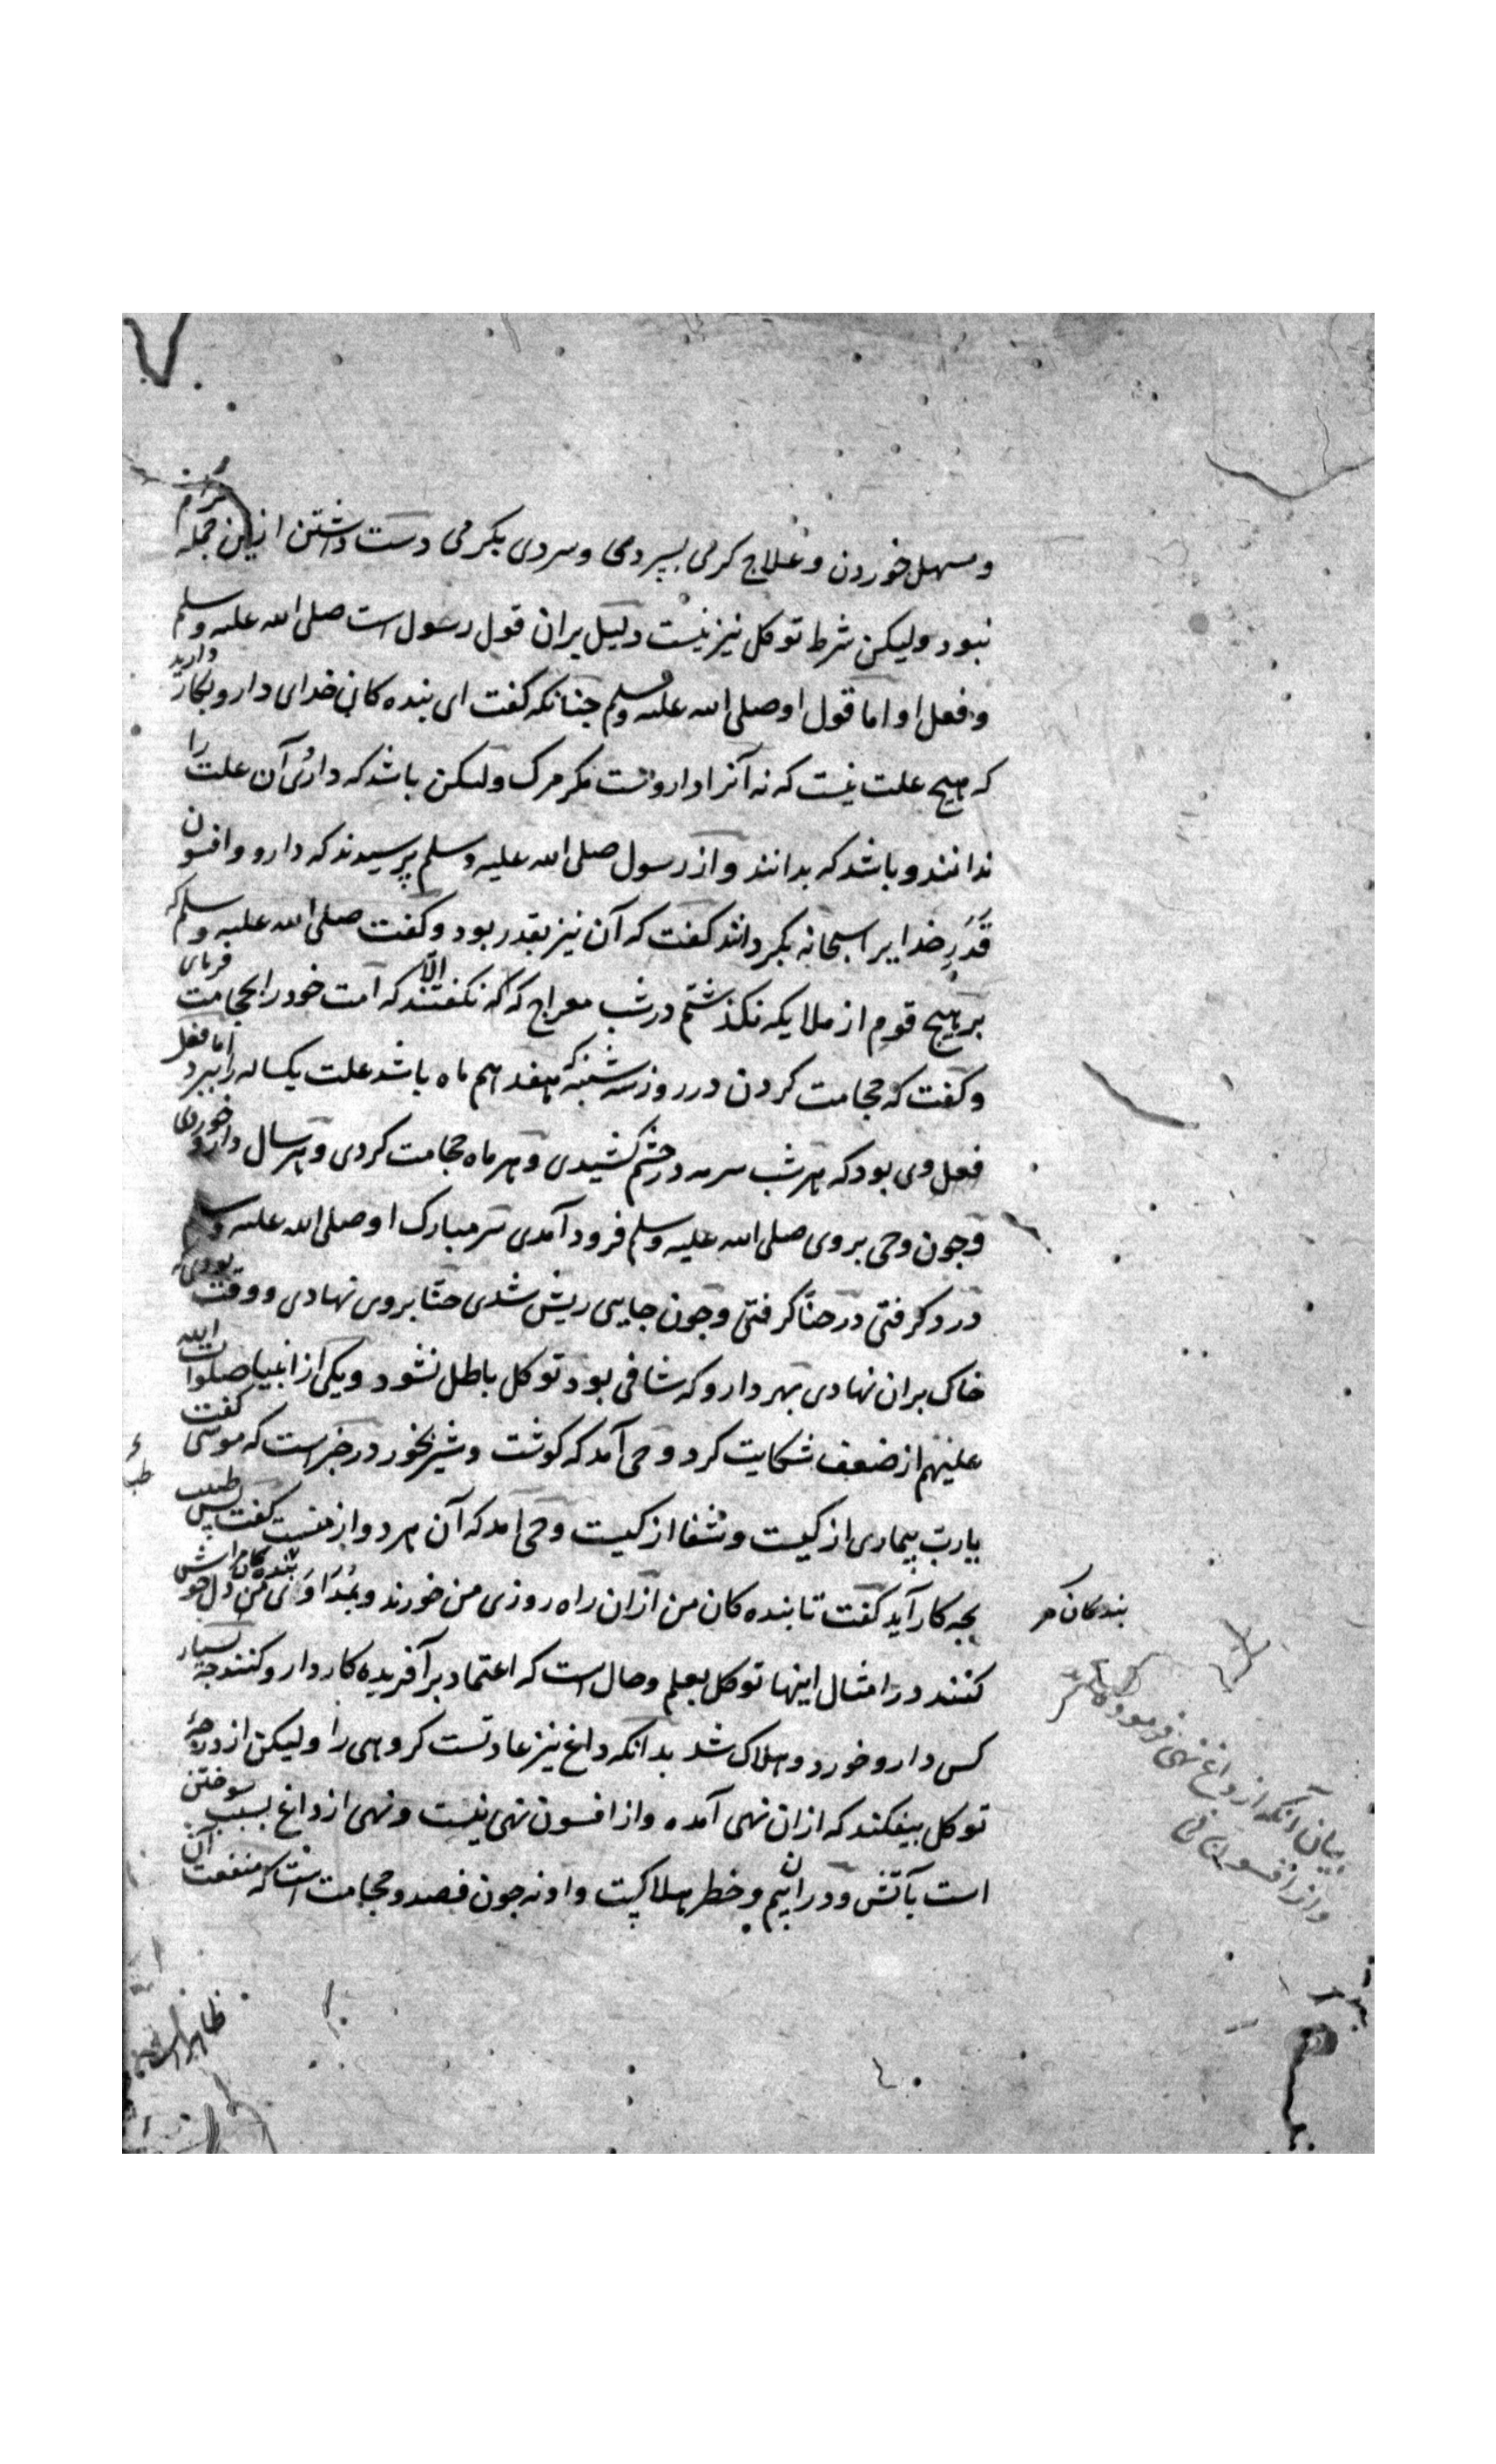 و مسهل خوردن و علاج کرمی بسردی و سردی بکرمی دست داشتن ازین جمله حرام
نبود ولیکن شرط توکل نیز نیست دلیل بران قول رسول است صلی الله علیه وسلم
و فعل او اما قول او صلی الله علیه وسلم جنانکه کفت ای بنده کان خدای دارو بکار دارید
که هیچ علت نیست که نه آنرا داروست مکر مرک ولیکن باشد که داروی آن علت را
ندانند و باشد که بدانند و از رسول صلی الله علیه وسلم پرسیدند که دارو و افسون
قَدَرِ خدایرا سبحانه بکرداند کفت که آن نیز بقدر بود و کفت صلی الله علیه وسلم که
بر هیچ قوم از ملایکه نکذشتم در شب معراج که نکفتند الّا که امت خود را بحجامت فرمای
و کفت که حجامت کردن در روز سه شنبه که هفدهم ماه باشد علت یکساله را ببرد اما فعل
فعل وی بود که هر شب سرمه در جشم کشیدی و هر ماه حجامت کردی و هر سال دارو خوردی
و جون وحی بر وی صلی الله علیه وسلم فرود آمدی سر مبارک او صلی الله علیه وسلم
درد کرفتی در حنّا کرفتی و جون جایی ریش شدی حنّا بر وی نهادی و وقت بودی که
خاک بران نهادی بهر دارو که شافی بود توکل باطل نشود و یکی از انبیا صلوات الله
علیهم از ضعف شکایت کرد وحی آمد که کوشت و شیر بخور در خبر است که موسی کفت
یا رب بیماری از کیست و شفا از کیست وحی آمد که آن هر دو از منست کفت پس طبیب
بجه کار آید کفت تا بنده کان من ازان راه روزی من خورند و بمداوای من دل خوش بنده کان مرا
کنند در امثال اینها توکل بعلم و حال است که اعتماد بر آفریده کار دارو کنند جه بسیار
کس دارو خورد و هلاک شد بدانکه داغ نیز عادتست کروهی را ولیکن از درجهٔ
توکل بیفکند که ازان نهی آمده و از افسون نهی نیست و نهی از داغ بسبب سوختن
است بآتش و دران بیم و خطر هلاکیست و او نه جون فصد و حجامت است که منفعت آن
بندکان مر
بیان آنکه از داغ نهی فرموده
و از افسون نی
ظاهر است